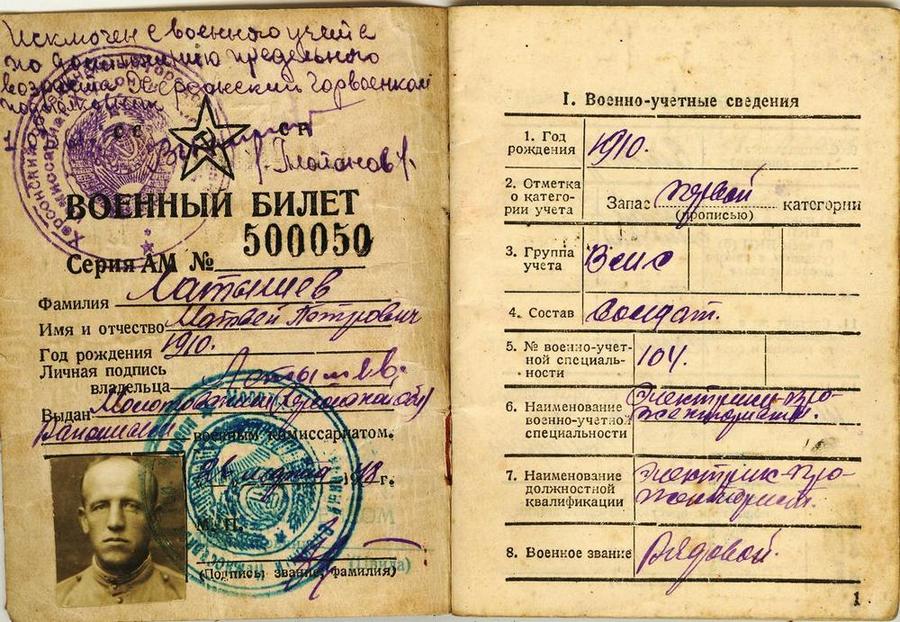 Исключен с военного учета
по достижению предельного
возраста Херсонский Горвоенком
подполковник
СС СР
ВОЕННЫЙ БИЛЕТ
Серия АМ № 500050
Фамилия Латышев
Имя и отчество Матвей Петрович
Год рождения 1910.
Личная подпись
владельца Латышев.
Выдан
военным комиссариатом.
г.
М. П.
(Подпись, звание, фамилия)
I. Военно-учетные сведения
1. Год
рождения 1910.
2. Отметка
о катего-
рии учета
Запас первой категории
(прописью)
3. Группа
учета
4. Состав Солдат.
5. № военно-учет-
ной специаль-
ности 104.
6. Наименование
военно-учетной
специальности
Электрик-про-
жекторист.
7. Наименование
должностной
квалификации
Электрик-про-
жекторист.
8. Военное звание Рядовой.
1